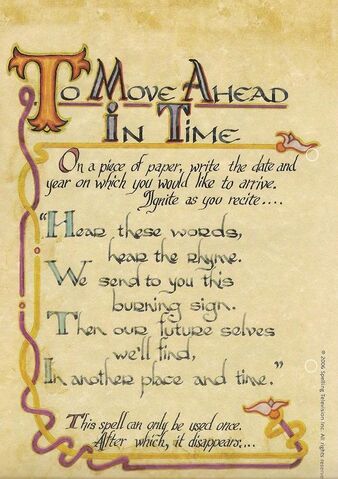 To Move Ahead
In Time
On a piece of paper, write the date and
year on which you would like to arrive.
Ignite as you recite....
"Hear these words,
hear the rhyme.
We send to you this
burning sign.
Then our future selves
we'll find,
In another place and time."
This spell can only be used once.
After which, it disappears....
© 2006 Spelling Television Inc. All rights reserved